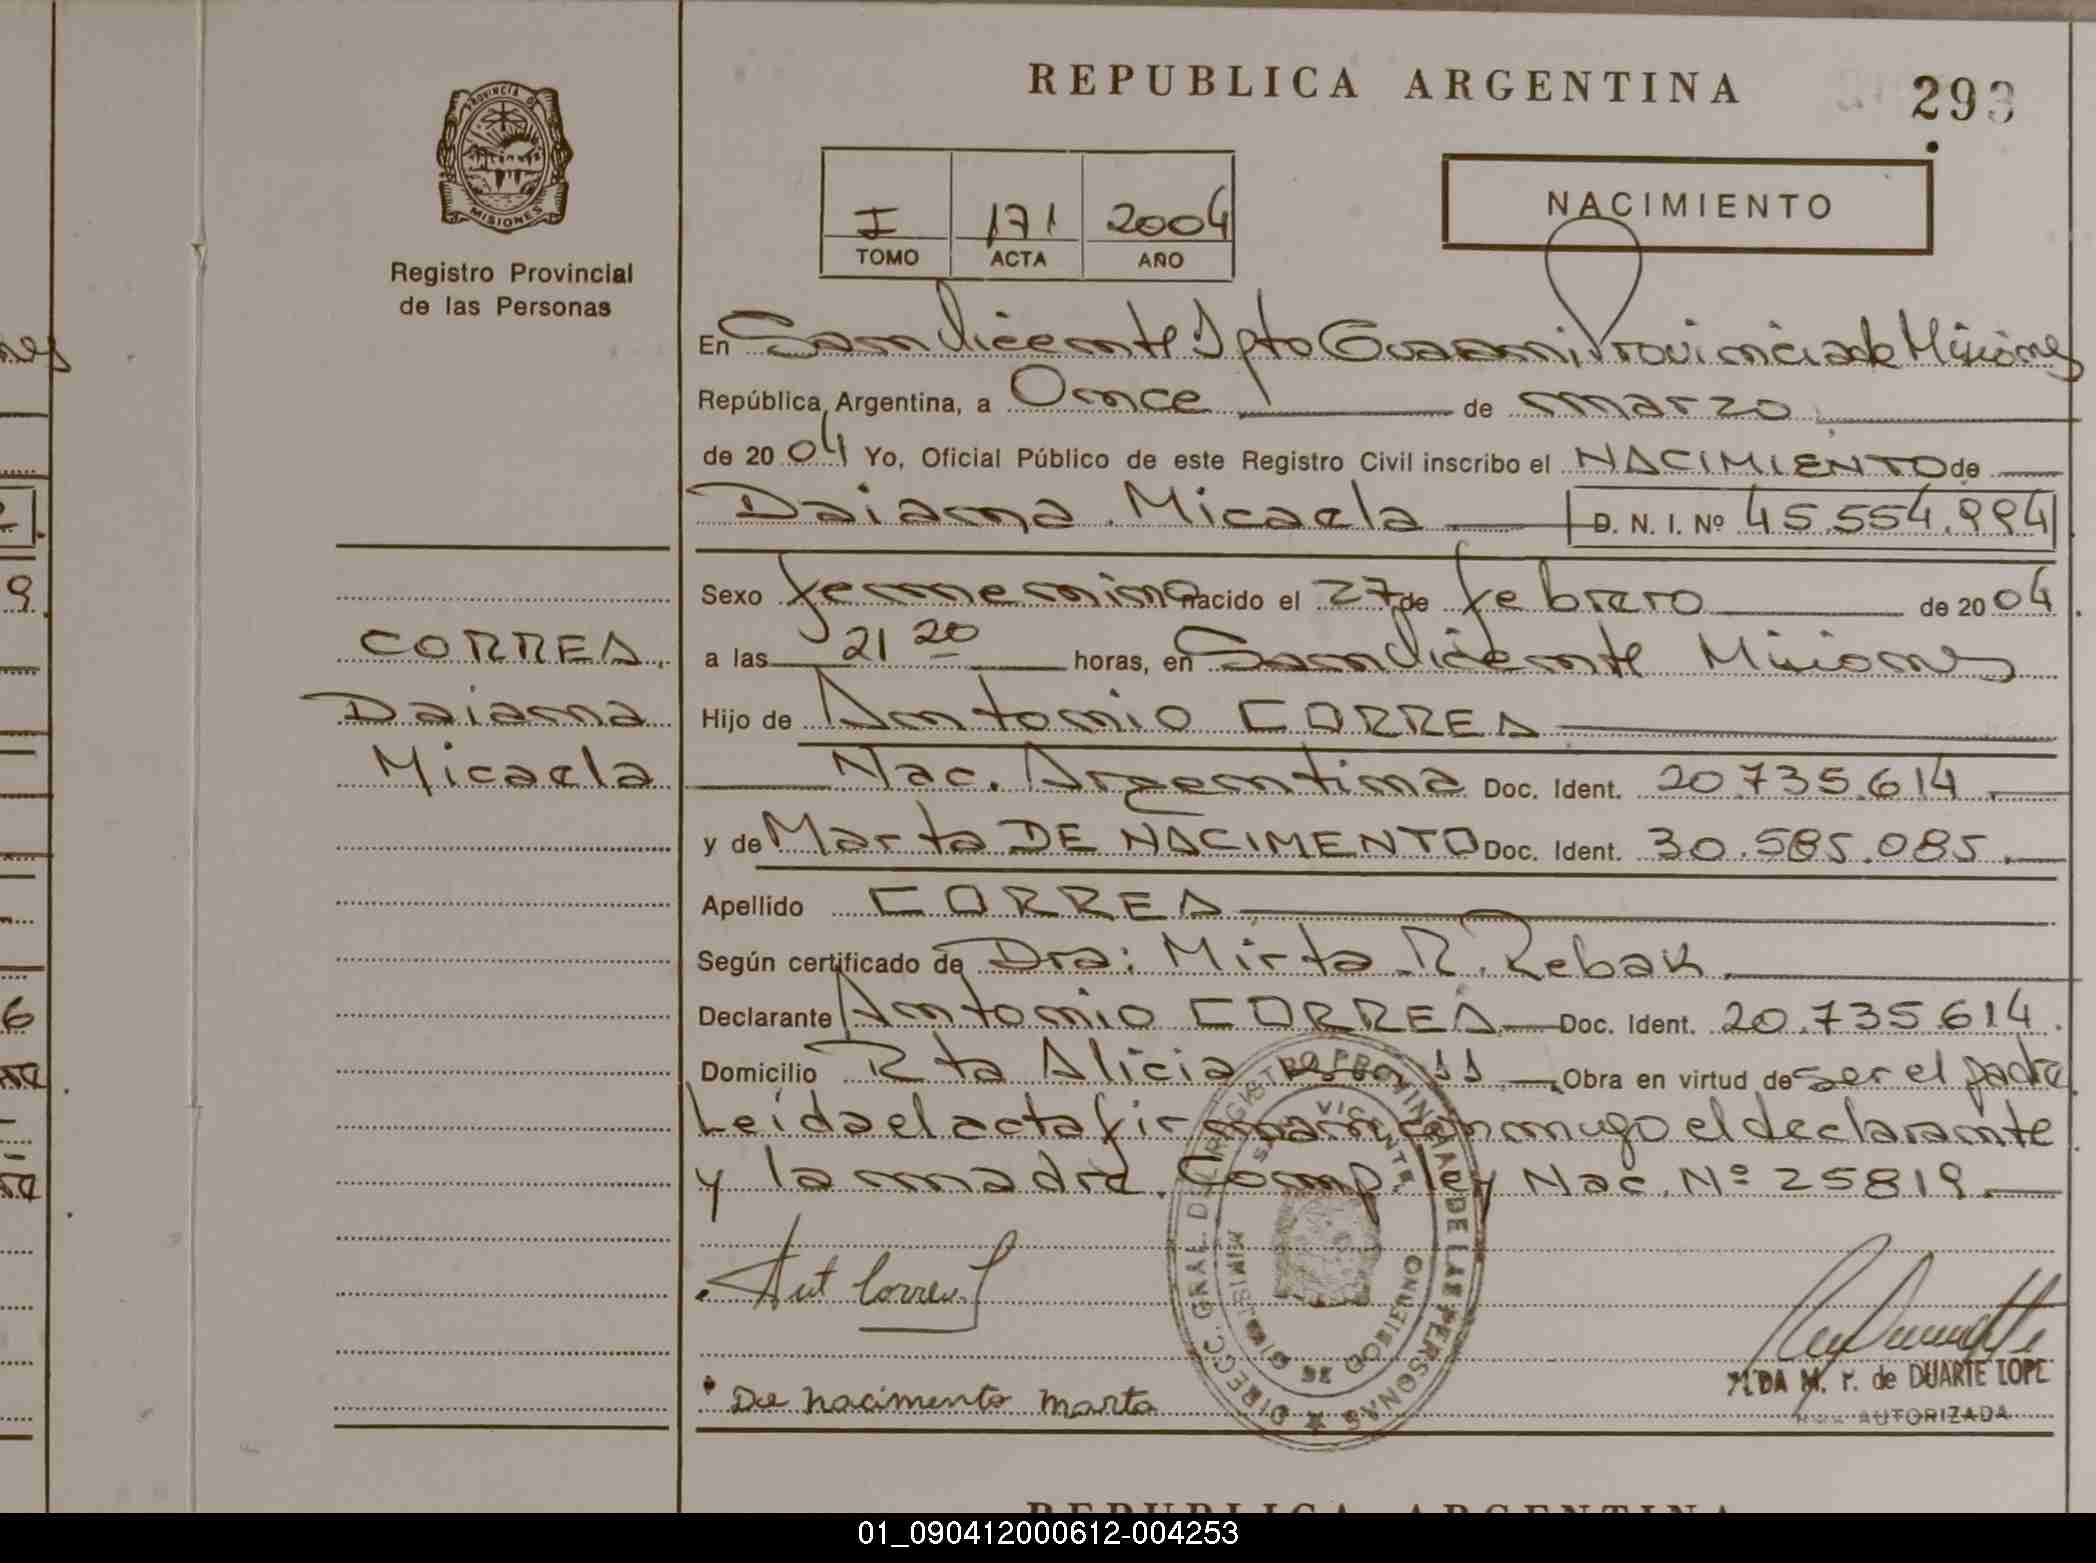 REPUBLICA ARGENTINA
293
PROVINCIA DE
MISIONES
Registro Provincial
de las Personas
I 171 2004
TOMO ACTA AÑO
NACIMIENTO
En San Vicente Dpto Guarani, Provincia de Misiones
República Argentina, a Once de marzo
de 2004 Yo, Oficial Público de este Registro Civil inscribo el NACIMIENTO de
Daiana Micaela D. N. I. Nº 45.554.994
Sexo femenino nacido el 27 de febrero de 2004
CORREA,
a las 21 20 horas, en San Vicente Misiones
Daiana
Hijo de Antonio CORREA
Micaela
Nac. Argentina Doc. Ident. 20.735.614
y de Marta DE NACIMENTO Doc. Ident. 30.585.085
Apellido CORREA
Según certificado de Dra: Mirta R. Rebak
Declarante Antonio CORREA Doc. Ident. 20.735.614
Domicilio Rta Alicia Obra en virtud de ser el padre
Leida el acta firman conmigo el declarante
y la madre. Comp. ley Nac. Nº 25819
Ant Correa
De nacimento marta
DIRECC. GRAL. DEL REGISTRO PROVINCIAL DE LAS PERSONAS
SAN VICENTE
MINIST. DE GOBIERNO
M. F. de DUARTE LOPE
AUTORIZADA
REPUBLICA ARGENTINA
01_090412000612-004253